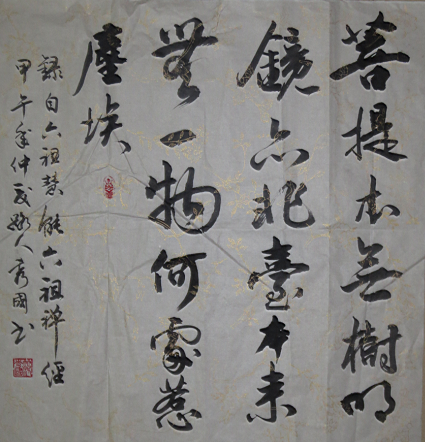 菩提本無樹明
鏡亦非臺本来
無一物何處惹
塵埃
錄自六祖慧能六祖禅經
甲午年仲夏人秀國书